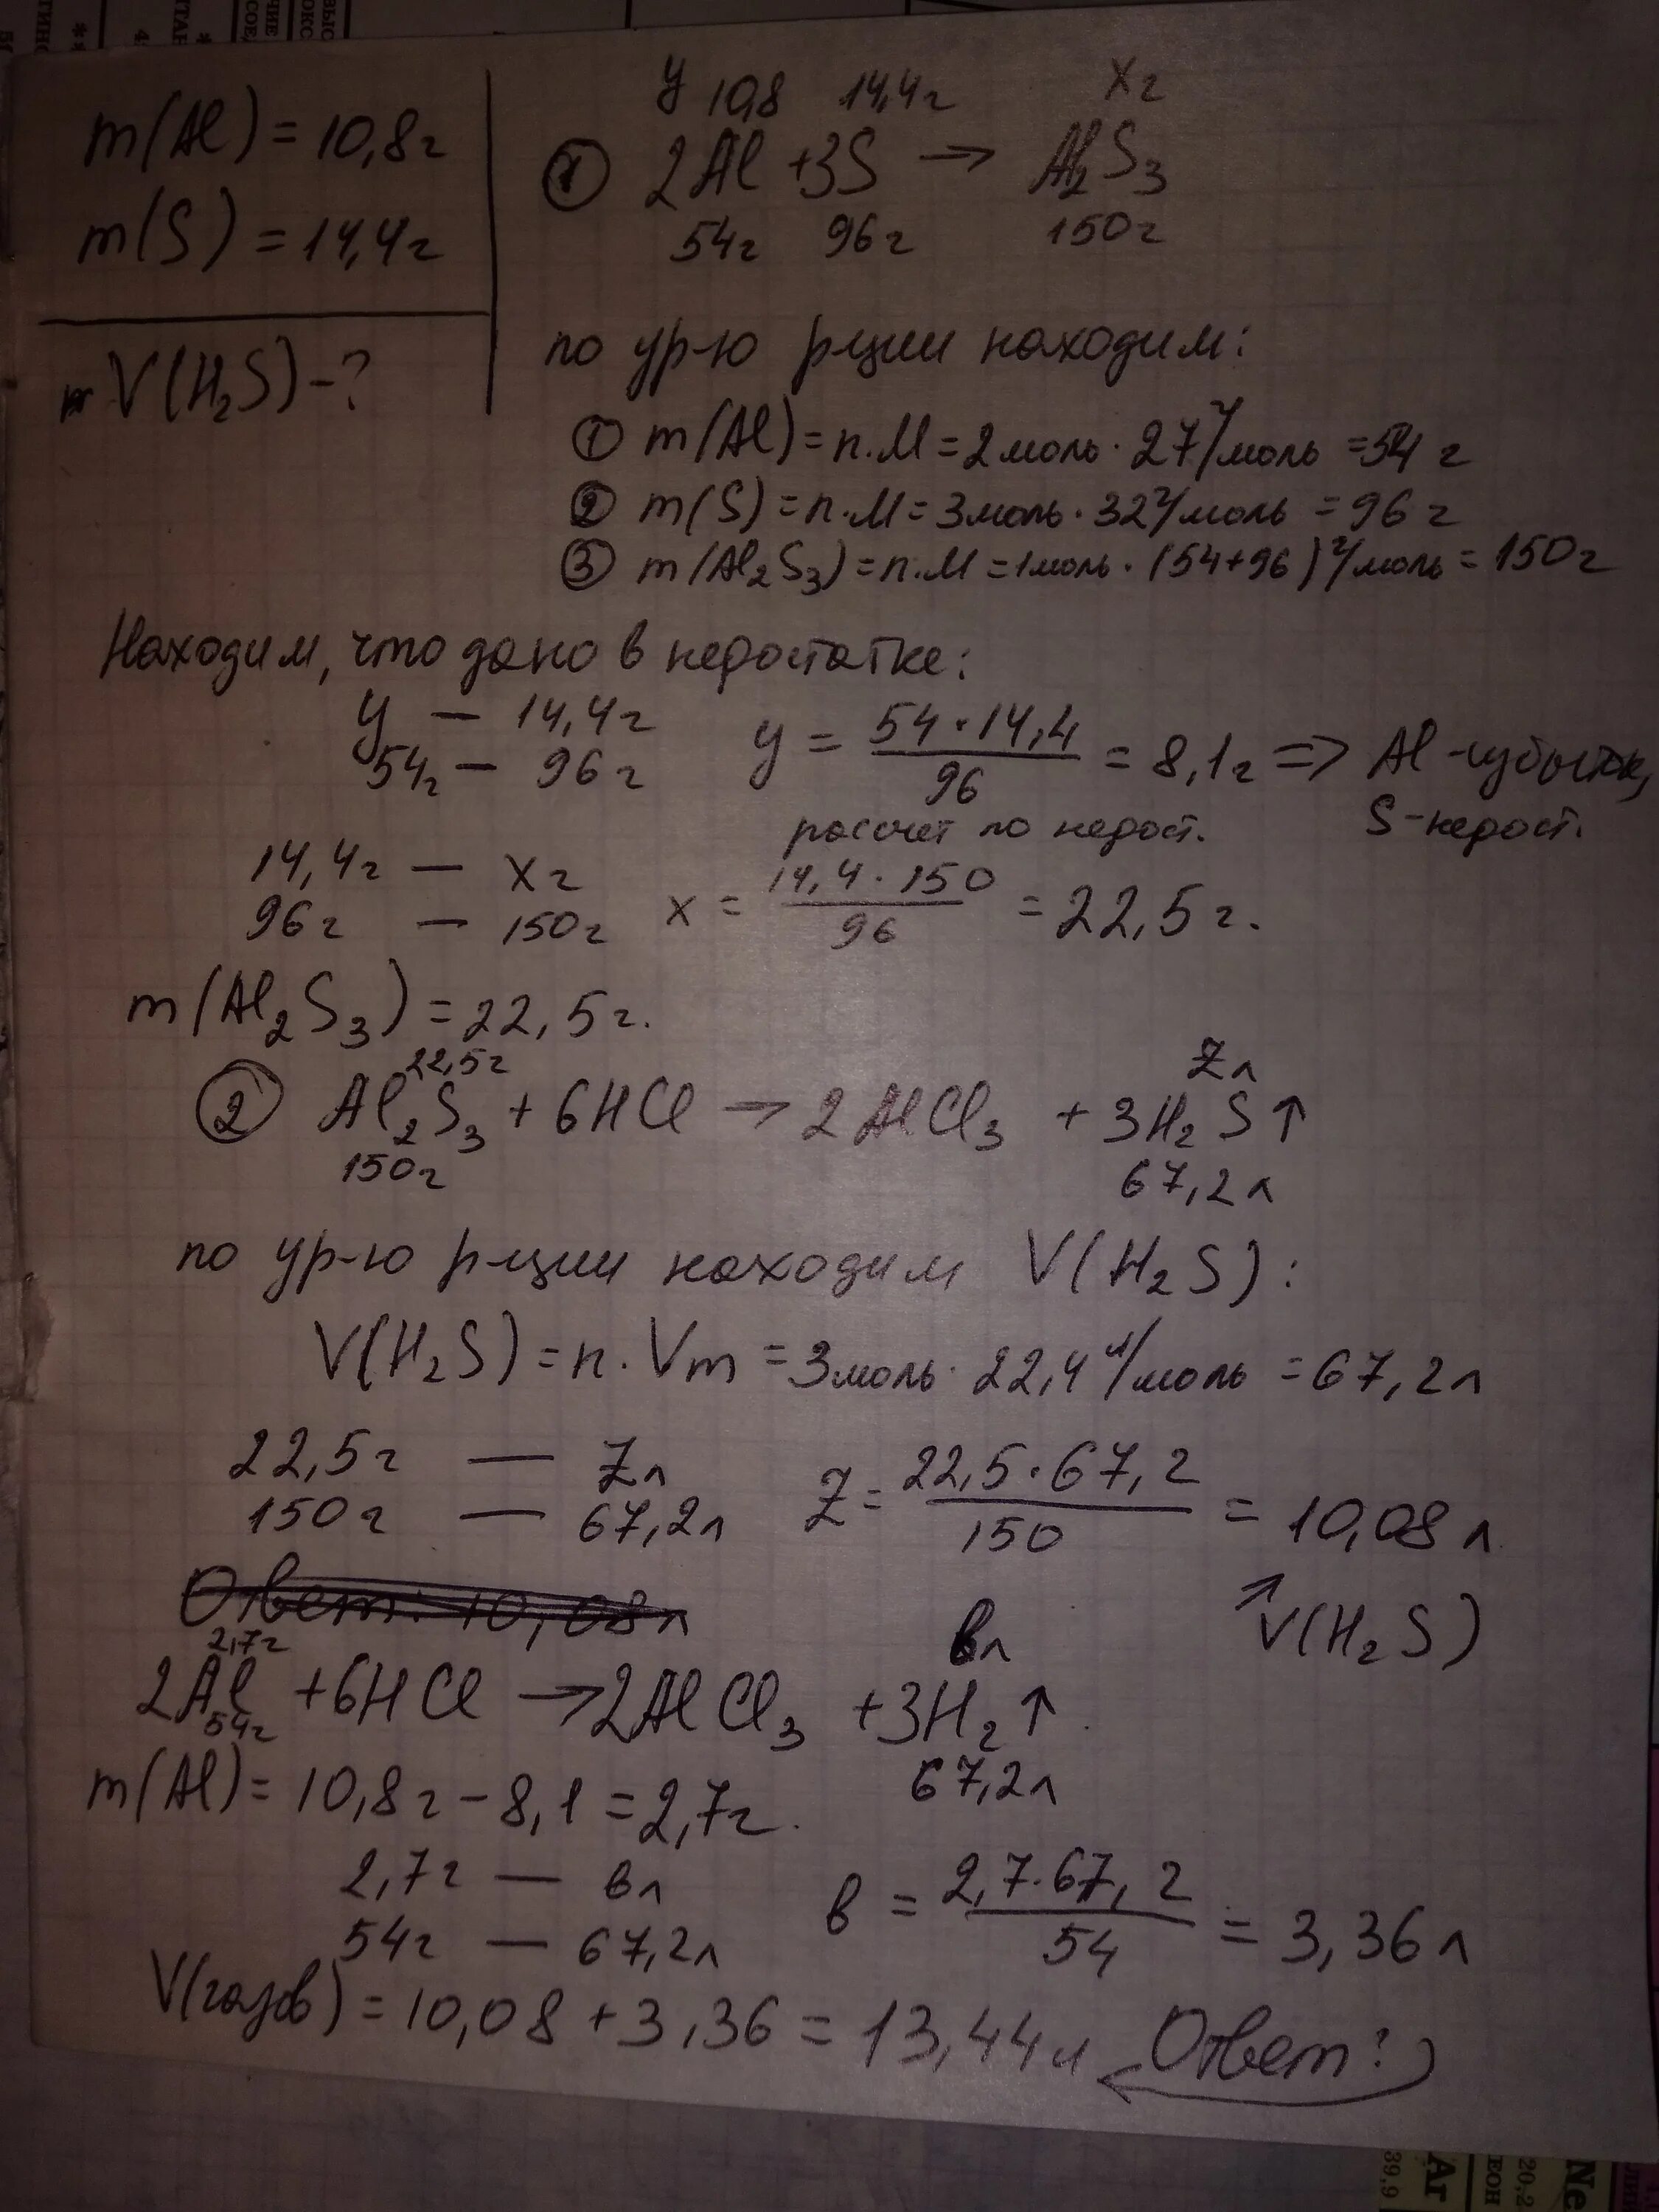 m(Al) = 10,8г
m(S) = 14,4г
V(H₂S) - ?
y 10,8 14,4г xг
① 2Al + 3S → Al₂S₃
54г 96г 150г
по ур-ю р-ции находим:
① m(Al) = n·M = 2моль · 27г/моль = 54 г
② m(S) = n·M = 3моль · 32г/моль = 96 г
③ m(Al₂S₃) = n·M = 1моль · (54+96) г/моль = 150г
Находим, что дано в недостатке:
y — 14,4г
54г — 96г
y = 54·14,4 / 96 = 8,1г => Al -избыток,
S-недост.
рассчет по недост.
14,4г — xг
96г — 150г
x = 14,4·150 / 96 = 22,5г.
m(Al₂S₃) = 22,5г.
22,5г Zл
② Al₂S₃ + 6HCl → 2AlCl₃ + 3H₂S↑
150г 67,2л
по ур-ю р-ции находим V(H₂S):
V(H₂S) = n·Vm = 3моль · 22,4 л/моль = 67,2л
22,5г — Zл
150г — 67,2л
Z = 22,5·67,2 / 150 = 10,08 л
Ответ: 10,08л
↗V(H₂S)
2,7г вл
2Al + 6HCl → 2AlCl₃ + 3H₂↑
54г 67,2л
m(Al) = 10,8г - 8,1 = 2,7г.
2,7г — вл
54г — 67,2л
в = 2,7·67,2 / 54 = 3,36л
V(газов) = 10,08 + 3,36 = 13,44л Ответ:
39,9
Ar
20,2
Ne